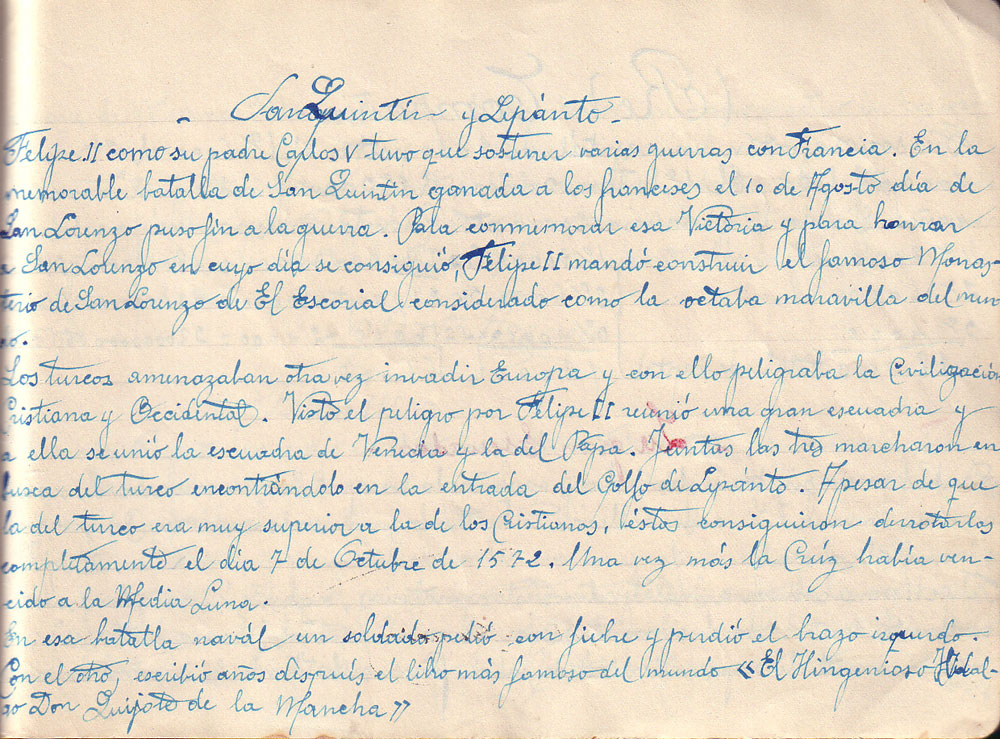 - San Quintín y Lepánto -
Felipe II como su padre Carlos V tuvo que sostener varias guerras con Francia. En la
memorable batalla de San Quintín ganada a los franceses el 10 de Agosto día de
San Lorenzo puso fín a la guerra. Para conmemorar esa Victoria y para honrar
a San Lorenzo en cuyo día se consiguió, Felipe II mandó construir el famoso Monas-
terio de San Lorenzo de El Escorial considerado como la octaba maravilla del mun-
do.
Los turcos amenazaban otra vez invadir Europa y con ello peligraba la Civiligación
Cristiana y Occidental. Visto el peligro por Felipe II reunió una gran escuadra y
a ella se unió la escuadra de Venecia y la del Papa. Juntas las tres marcharon en
busca del turco encontrándolo en la entrada del Golfo de Lepánto. Apesar de que
la del turco era muy superior a la de los Cristianos, éstos consiguiron derrotarlas
completamente el día 7 de Octubre de 1572. Una vez más la Crúz había ven-
cido a la Media Luna.
En esa batalla navál un soldado peleó con fiebre y perdió el brazo izquerdo.
Con el otro, escribió años después el libro más famoso del mundo «El Hingenioso Hidal-
go Don Quijote de la Mancha»